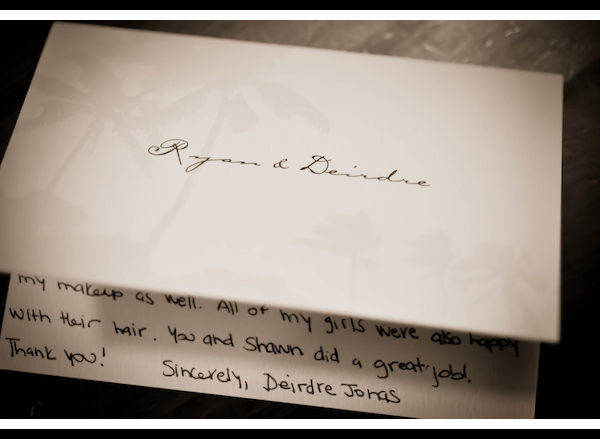 Ryan & Deirdre
my makeup as well. All of my girls were also happy
with their hair. You and Shawn did a great job!
Thank you! Sincerely, Deirdre Jonas